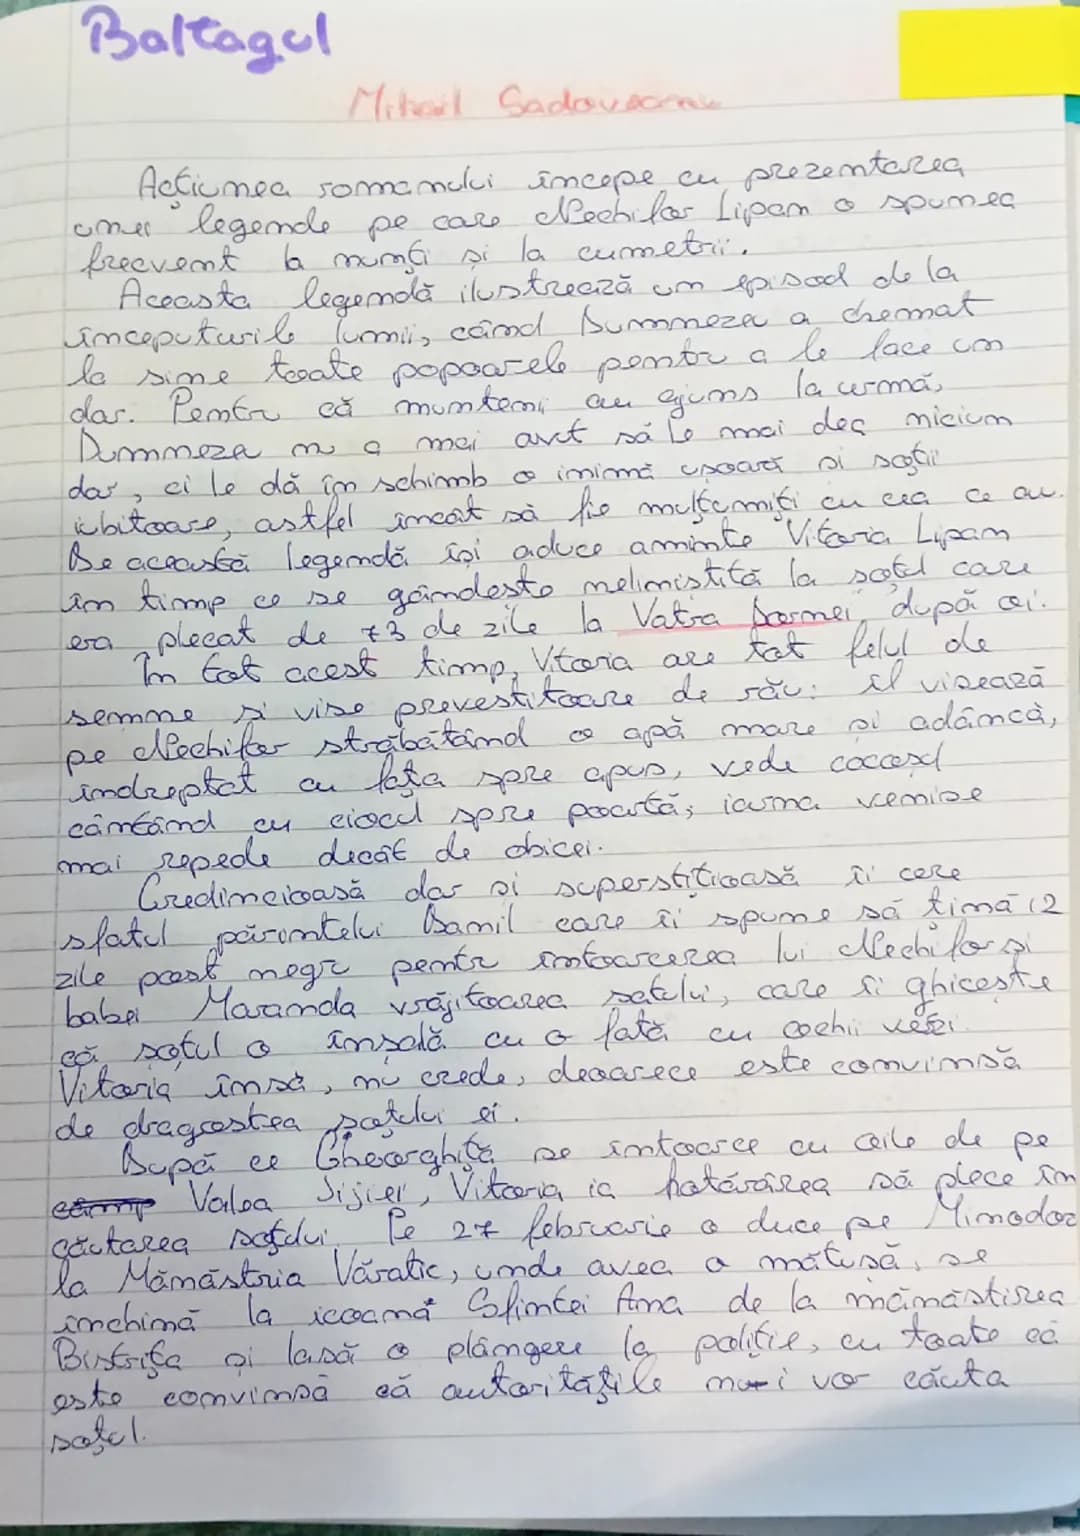 Baltagul
Mihail Sadoveanu
Acțiunea romanului începe cu prezentarea
unei legende pe care Nechifor Lipan o spunea
frecvent la nunți și la cumetrii.
Aceasta legendă ilustrează un episod de la
începuturile lumii, când Dumnezeu a chemat
la sine toate popoarele pentru a le face un
dar. Pentru că muntenii au ajuns la urmă,
Dumnezeu nu a mai avut să le mai dea niciun
dar, ci le dă în schimb o inimă ușoară și soții
iubitoare, astfel încât să fie mulțumiți cu cea ce au.
De această legendă își aduce aminte Vitoria Lipan
în timp ce se gândește neliniștită la soțul care
era plecat de 73 de zile la Vatra Dornei după oi.
În tot acest timp, Vitoria are tot felul de
semne și vise prevestitoare de rău: îl visează
pe Nechifor străbătând o apă mare și adâncă,
îndreptat cu fața spre apus, vede cocoșul
cântând cu ciocul spre poartă; iarna venise
mai repede decât de obicei.
Credincioasă dar și superstițioasă îi cere
sfatul părintelui Danil care îi spune să țină 12
zile post negru pentru întoarcerea lui Nechifor și
babei Maranda vrăjitoarea satului, care îi ghicește
că soțul o înșală cu o fată cu ochii verzi.
Vitoria însă, nu crede, deoarece este convinsă
de dragostea soțului ei.
După ce Gheorghiță se întoarce cu oile de pe
Valea Jijiei, Vitoria ia hotărârea să plece în
căutarea soțului. Pe 27 februarie o duce pe Minodora
la Mănăstria Văratic, unde avea o mătușă, se
închină la icoana Sfintei Ana de la mănăstirea
Bistrița și lasă o plângere la poliție, cu toate că
este convinsă că autoritățile nu-i vor căuta
soțul.